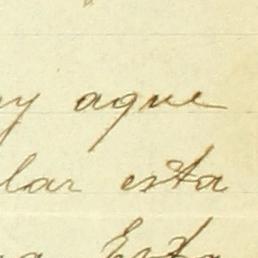 y aque
lar esta
Esta